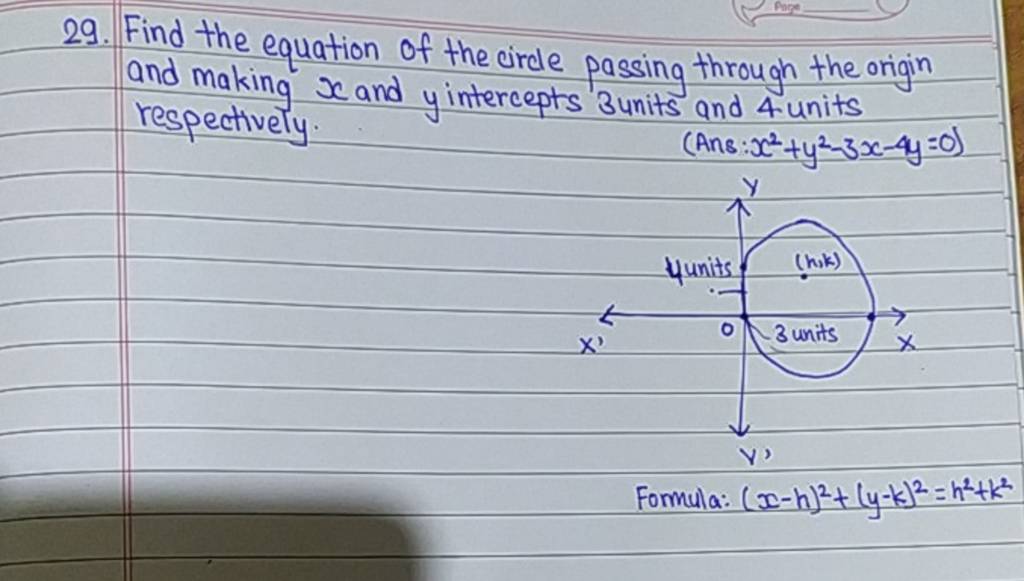 Page
29. Find the equation of the circle passing through the origin
and making x and y intercepts 3 units and 4 units
respectively.
(Ans: x²+y²-3x-4y=0)
Y
4 units
(h,k)
O
3 units
X'
X
Y'
Formula: (x-h)²+(y-k)²=h²+k²